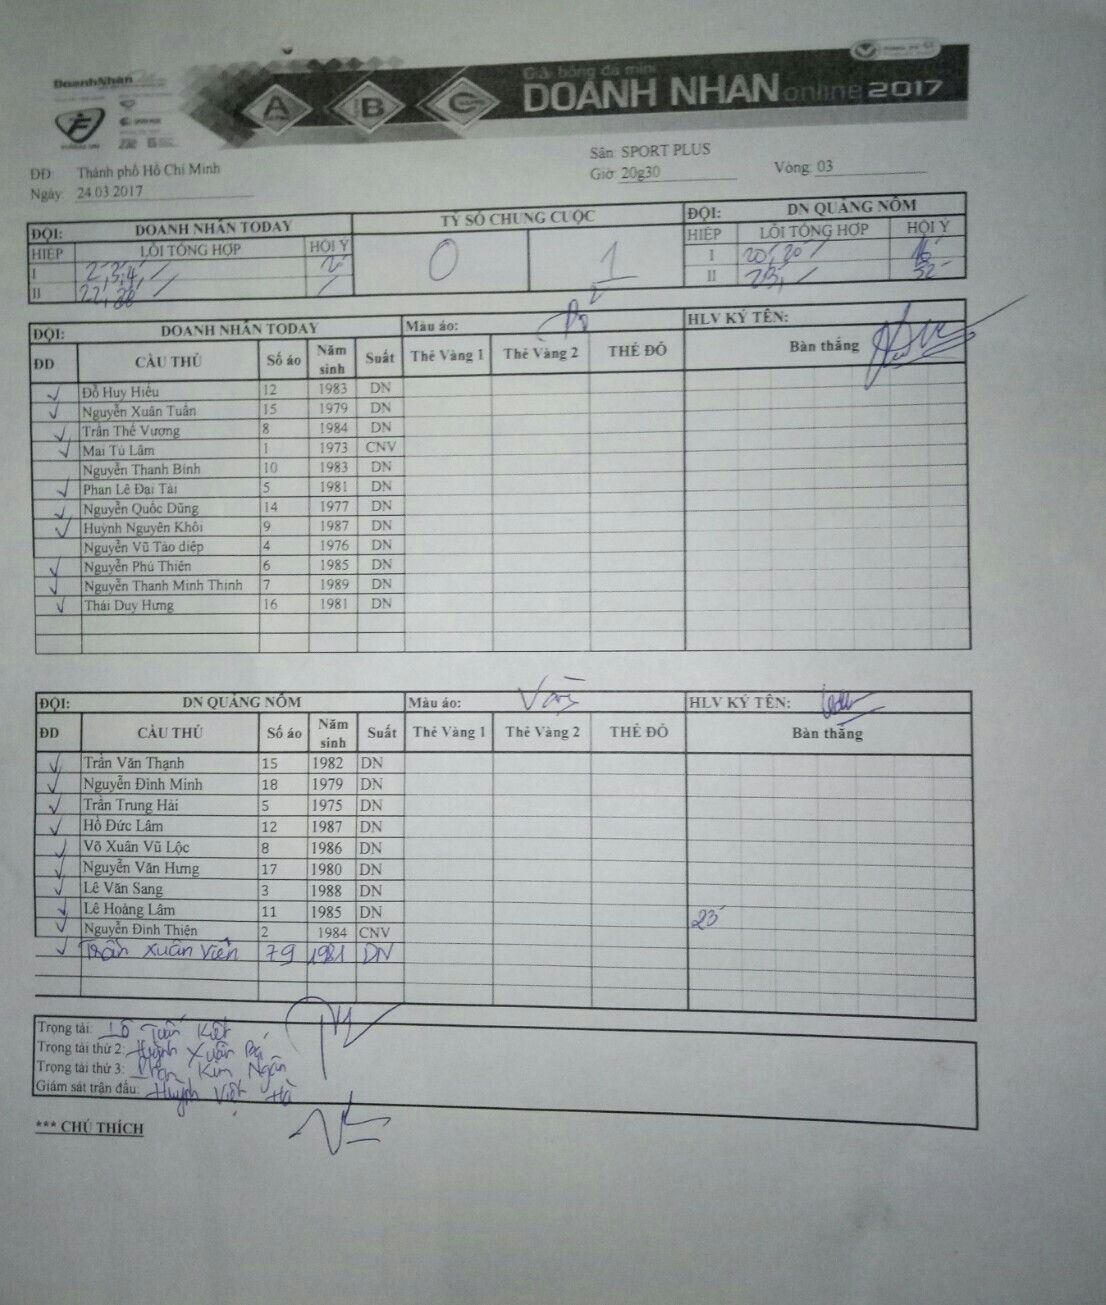 DoanhNhân
Giải bóng đá mini
DOANH NHAN online 2017
A B C
Sân: SPORT PLUS
ĐĐ: Thành phố Hồ Chí Minh
Giờ: 20g30 Vòng: 03
Ngày: 24.03.2017
ĐỘI: DOANH NHÂN TODAY TỶ SỐ CHUNG CUỘC ĐỘI: DN QUẢNG NÔM
HIỆP LỖI TỔNG HỢP HỘI Ý 0 1 HIỆP LỖI TỔNG HỢP HỘI Ý
I 2', 3', 4', I 20', 20'
II 22', II 23',
ĐỘI: DOANH NHÂN TODAY Màu áo: HLV KÝ TÊN:
ĐD CẦU THỦ Số áo Năm sinh Suất Thẻ Vàng 1 Thẻ Vàng 2 THẺ ĐỎ Bàn thắng
✓ Đỗ Huy Hiếu 12 1983 DN
✓ Nguyễn Xuân Tuấn 15 1979 DN
✓ Trần Thế Vượng 8 1984 DN
✓ Mai Tú Lâm 1 1973 CNV
Nguyễn Thanh Bình 10 1983 DN
✓ Phan Lê Đại Tài 5 1981 DN
✓ Nguyễn Quốc Dũng 14 1977 DN
✓ Huỳnh Nguyên Khôi 9 1987 DN
Nguyễn Vũ Tào diệp 4 1976 DN
✓ Nguyễn Phú Thiên 6 1985 DN
✓ Nguyễn Thanh Minh Thịnh 7 1989 DN
✓ Thái Duy Hưng 16 1981 DN
ĐỘI: DN QUẢNG NÔM Màu áo: Vàng HLV KÝ TÊN:
ĐD CẦU THỦ Số áo Năm sinh Suất Thẻ Vàng 1 Thẻ Vàng 2 THẺ ĐỎ Bàn thắng
✓ Trần Văn Thạnh 15 1982 DN
✓ Nguyễn Đình Minh 18 1979 DN
✓ Trần Trung Hải 5 1975 DN
✓ Hồ Đức Lâm 12 1987 DN
✓ Võ Xuân Vũ Lộc 8 1986 DN
✓ Nguyễn Văn Hưng 17 1980 DN
✓ Lê Văn Sang 3 1988 DN
✓ Lê Hoàng Lâm 11 1985 DN 23'
✓ Nguyễn Đình Thiện 2 1984 CNV
✓ Trần Xuân Viễn 79 1981 DN
Trọng tài: Tuấn Kiệt
Trọng tài thứ 2: Huỳnh Xuân
Trọng tài thứ 3: Phan Kim Ngân
Giám sát trận đấu: Huỳnh Việt Hà
*** CHÚ THÍCH